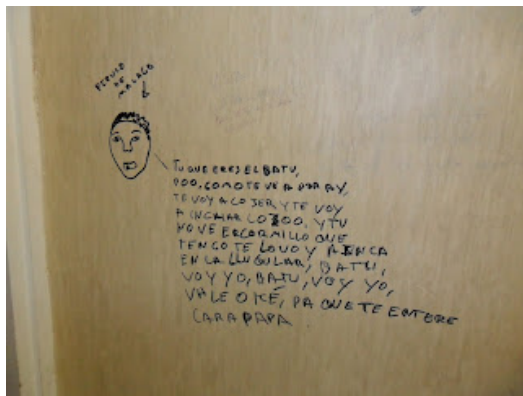 DE
MALAGA
TU QUE ERES EL BATU,
POO, COMO TE VEA POR AY,
TE VOY A COJER Y TE VOY
A INCHAR LOJOO, Y TU
NOVE ER CORMILLO QUE
TENGO TE LOVOY A
EN LA LLUGULAR, BATU,
VOY YO, BATU, VOY YO,
VALE OKÉ, PA QUE TE ENTERE
CARAPAPA